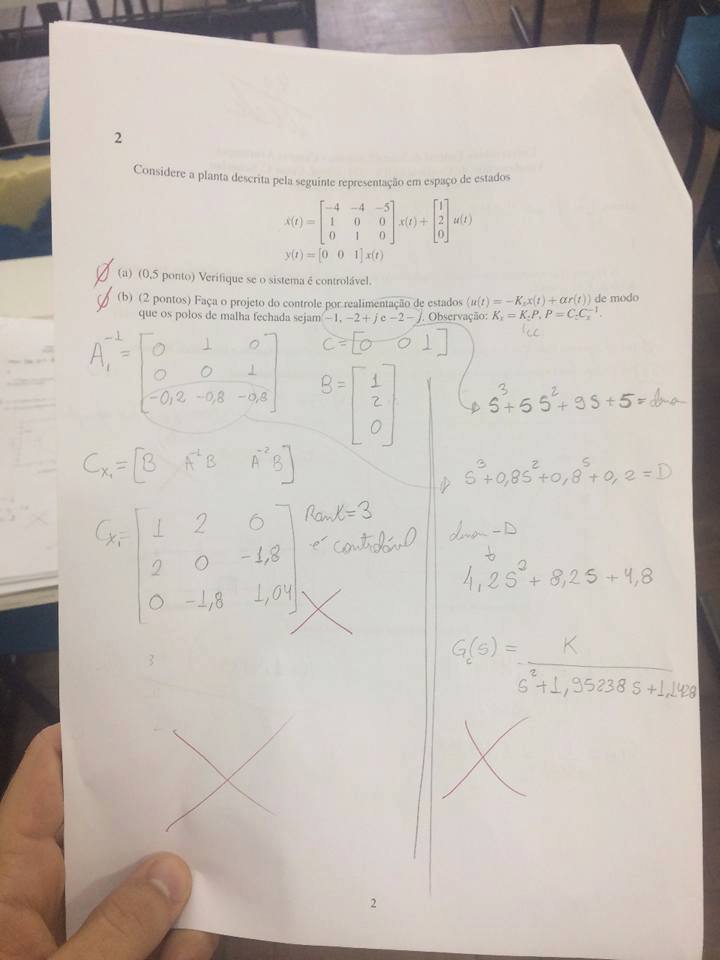 2
Considere a planta descrita pela seguinte representação em espaço de estados
ẋ(t) = [−4 −4 −5; 1 0 0; 0 1 0] x(t) + [1; 2; 0] u(t)
y(t) = [0 0 1] x(t)
(a) (0,5 ponto) Verifique se o sistema é controlável.
(b) (2 pontos) Faça o projeto do controle por realimentação de estados (u(t) = −Kₓx(t) + αr(t)) de modo
que os polos de malha fechada sejam −1, −2 + j e −2 − j. Observação: Kₓ = K_zP, P = C_zCₓ⁻¹.
A₁⁻¹ = [0 1 0; 0 0 1; −0,2 −0,8 −0,8]
C = [0 0 1]
B = [1; 2; 0]
Cx₁ = [B A⁻¹B A⁻²B]
Cx₁ = [1 2 0; 2 0 −1,8; 0 −1,8 1,04]
Rank = 3
é controlável
S³ + 5S² + 9S + 5 =
S³ + 0,8S² + 0,8S + 0,2 = D
− D
4,2S² + 8,2S + 4,8
G_c(S) = K / S² + 1,95238 S + 1,1428
2